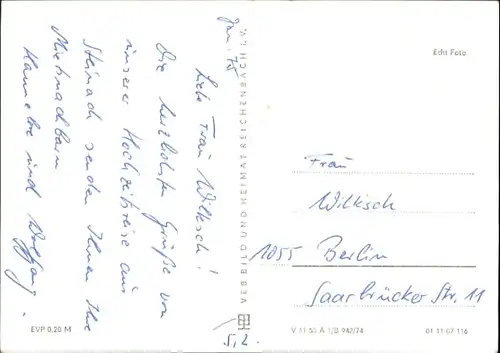 Jan. 75
Liebe Frau Wilksch!
Die herzlichsten Grüße von
unserer Hochzeitsreise aus
Steinach senden Ihnen Ihre
Mietnachbarn
Hannelore und Wolfgang.
VEB BILD UND HEIMAT REICHENBACH I. V.
Echt Foto
Frau
Wilksch
1055 Berlin
Saarbrücker Str. 11
EVP 0,20 M
V 11 50 A 1/B 942/74
01 11 07 116